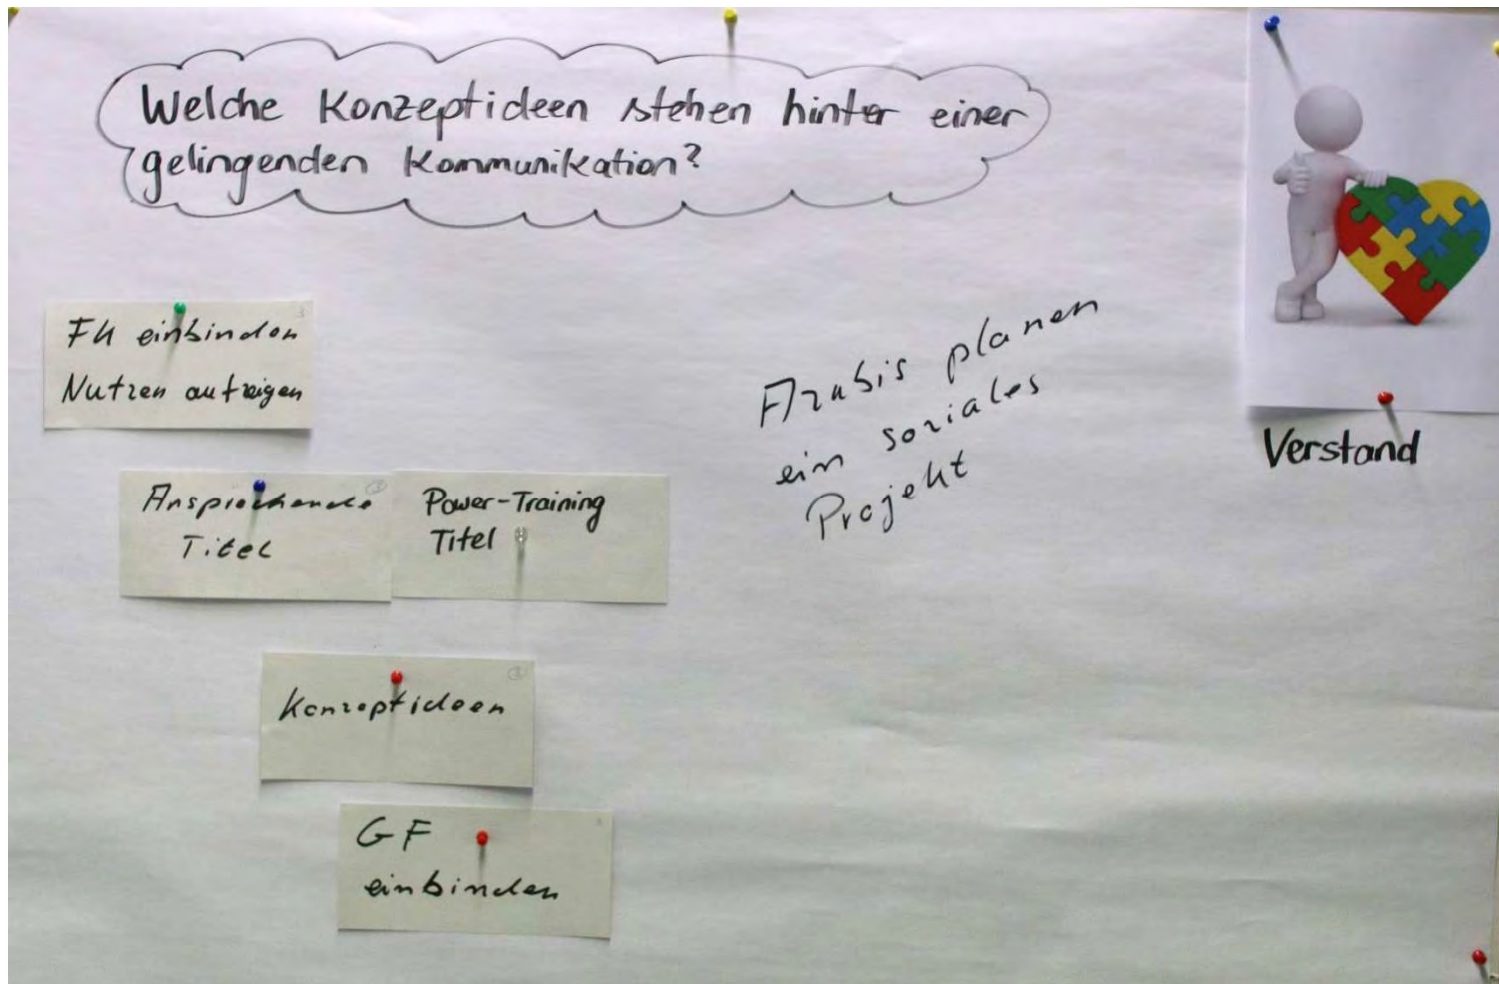 Welche Konzeptideen stehen hinter einer
gelingenden Kommunikation?
FK einbinden
Nutzen aufzeigen
Ansprechende
Titel
Power-Training
Titel
Konzeptideen
GF
einbinden
Azubis planen
ein soziales
Projekt
Verstand